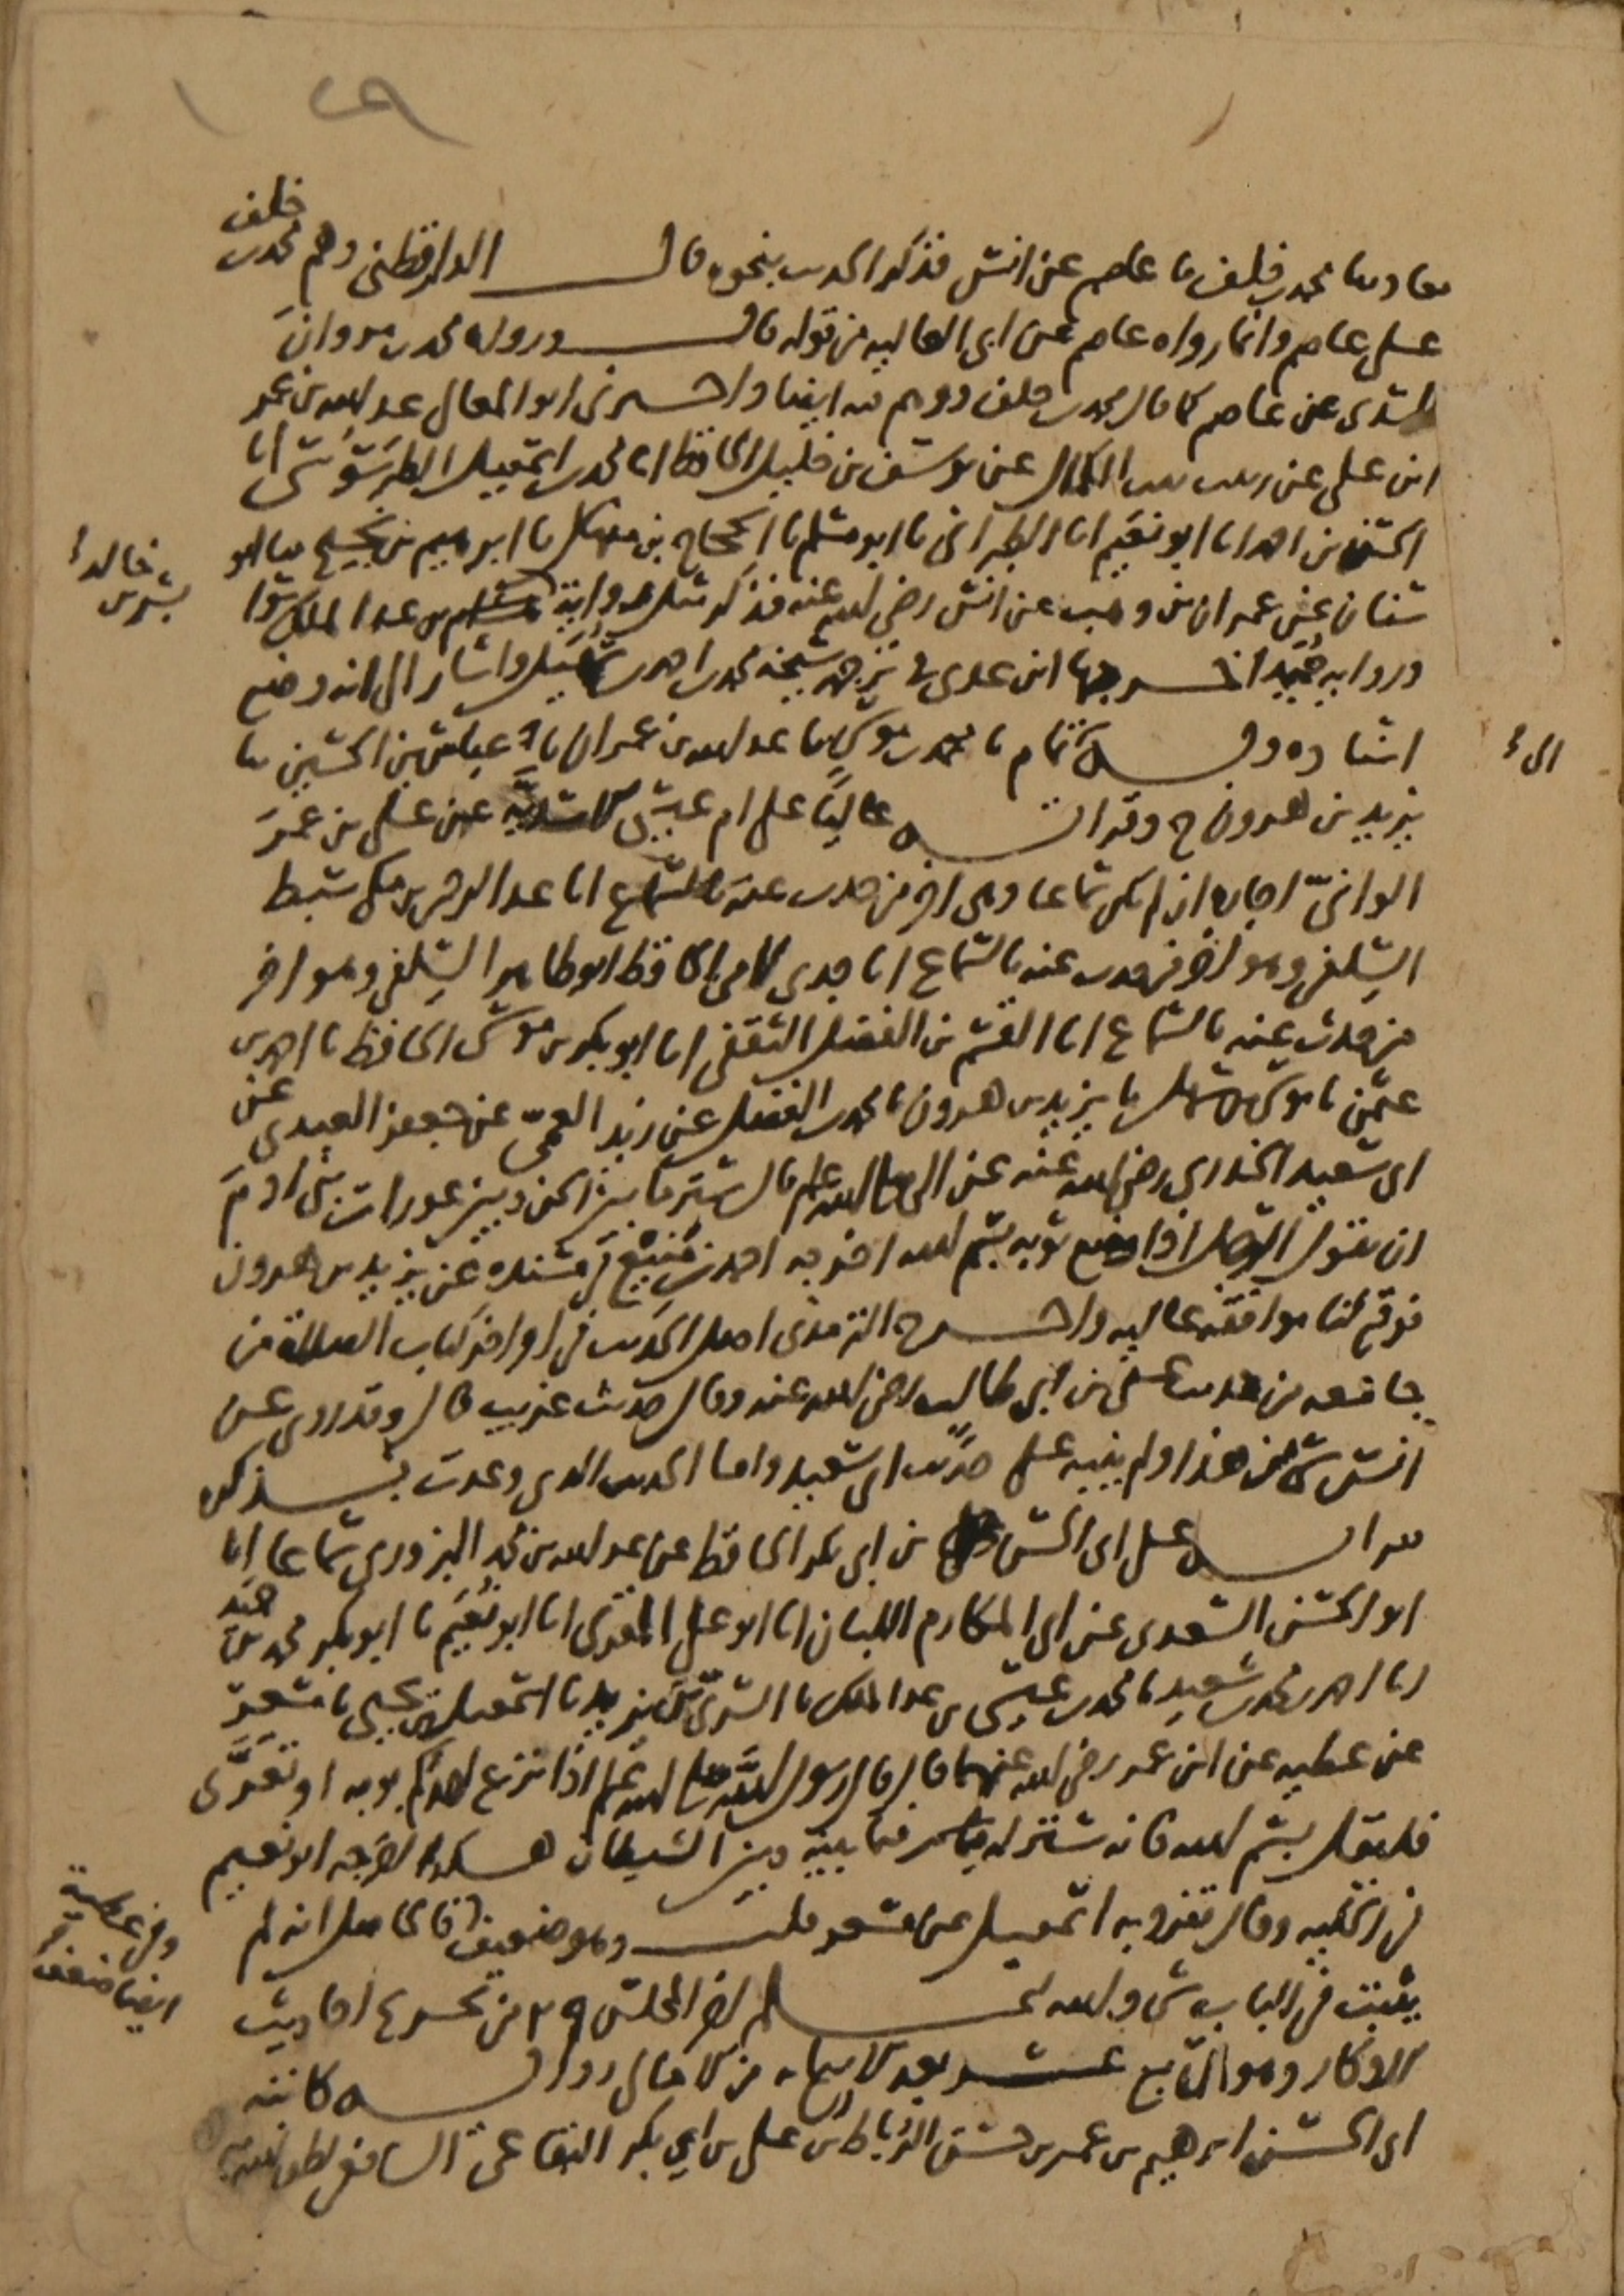 خلف
معاوية ثنا محمد بن خلف ثنا عاصم عن انس فذكر الحديث بنحوه قال الدارقطني وهم محمد بن
على عاصم وانما رواه عاصم عن ابي العالية من قوله قال ورواه محمد بن مروان
السدي عن عاصم كما قال محمد بن خلف ووهم فيه ايضا واخبرني ابو المعالي عبد الله بن عمر
ابن علي عن زينب بنت الكمال عن يوسف بن خليل الحافظ انا محمد بن اسمعيل الطرسوسي انا
الحسن بن احمد انا ابو نعيم انا الطبراني نا ابو مسلم نا الحجاج بن منهال نا ابرهيم بن نجيح نا ابو
سنان عن عمران بن وهب عن انس رضي الله عنه فذكر مثل رواية عبد الملك سوا
ورواية حميد اخرجها ابن عدي في ترجمة شيخه محمد بن احمد بن سهيل واشار الى انه وضع
اسناده وبه الى تمام نا محمد بن موسى نا عبد الله بن عمران نا عباس بن الحسين نا
يزيد بن هرون ح وقرأته عاليا على ام عيسى الاسدية عن علي بن عمر
الواني اجازة ان لم يكن سماعا وهي اخر من حدث عنه بالسماع انا عبد الرحمن بن مكي سبط
السلفي وهو اخر من حدث عنه بالسماع انا جدي لامي الحافظ ابو طاهر السلفي وهو اخر
من حدث عنه بالسماع انا القسم بن الفضل الثقفي انا ابو بكر بن موسى الحافظ نا احمد بن
عثمن نا موسى بن سهل نا يزيد بن هرون نا محمد بن الفضل عن زيد العمي عن جعفر العبدي عن
ابي سعيد الخدري رضي الله عنه عن النبي صلى الله عليه وسلم قال ستر ما بين الجن وبين عورات بني ادم
ان يقول الرجل اذا وضع ثوبه بسم الله اخرجه احمد بن منيع في مسنده عن يزيد بن هرون
فوقع لنا موافقة عالية واخرج الترمذي اصل الحديث في اواخر كتاب الصلاة من
جامعه من حديث علي بن ابي طالب رضي الله عنه وقال حديث غريب قال وقد روي عن
انس شئ من هذا ولم ينبه على حديث ابي سعيد واما الحديث الذي وعدت بذكره
فقرأته على ابي الحسن بن ابي بكر الحافظ عن عبد الله بن محمد البزوري سماعا انا
ابو الحسن السعدي عن ابي المكارم اللبان انا ابو علي المقرئ انا ابو نعيم نا ابو بكر محمد بن حميد
نا احمد بن محمد بن سعيد نا محمد بن عيسى بن عبد الملك نا السري بن يزيد نا اسمعيل بن يحيى نا مسعر
عن عطية عن ابن عمر رضي الله عنهما قال قال رسول الله صلى الله عليه وسلم اذا نزع احدكم ثوبه او تعرى
فليقل بسم الله فانه ستر له فيما بينه وبين الشيطان هكذا اخرجه ابو نعيم
في الحلية وقال تفرد به اسمعيل عن مسعر قلت وهو ضعيف فالحاصل انه لم
يثبت في الباب شئ والله اعلم اخر المجلس ٢٩ من تخريج احاديث
الاذكار وهو التاسع عشر بعد الاربعمائة من الامالي رواية كاتبه
ابي الحسن ابرهيم بن عمر بن حسن الرباط بن علي بن ابي بكر البقاعي الشافعي لطف الله به
بشر بن خالد
الى
وفي عطية
ايضا ضعف